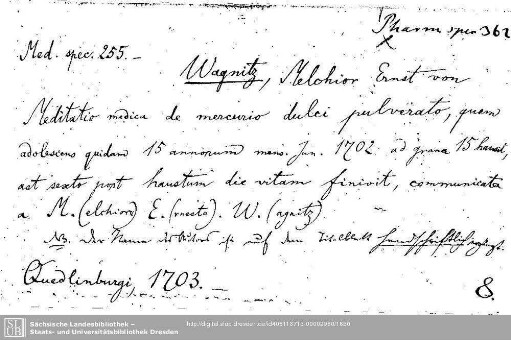 Pharm. spec 362
Med. spec. 255. –
Wagnitz, Melchior Ernst von
Meditatio medica de mercurio dulci pulverato, quem
adolescens quidam 15 annorum mens. Jun. 1702. ad grana 15 hausit,
ast sexto post haustum die vitam finivit, communicata
a M. (elchiore) E. (rnesto). W. (agnitz).
NB. Der Name des Autors ist auf dem Titelblatt handschriftlich
Quedlinburgi, 1703. –
8.
SLUB
Sächsische Landesbibliothek –
Staats- und Universitätsbibliothek Dresden